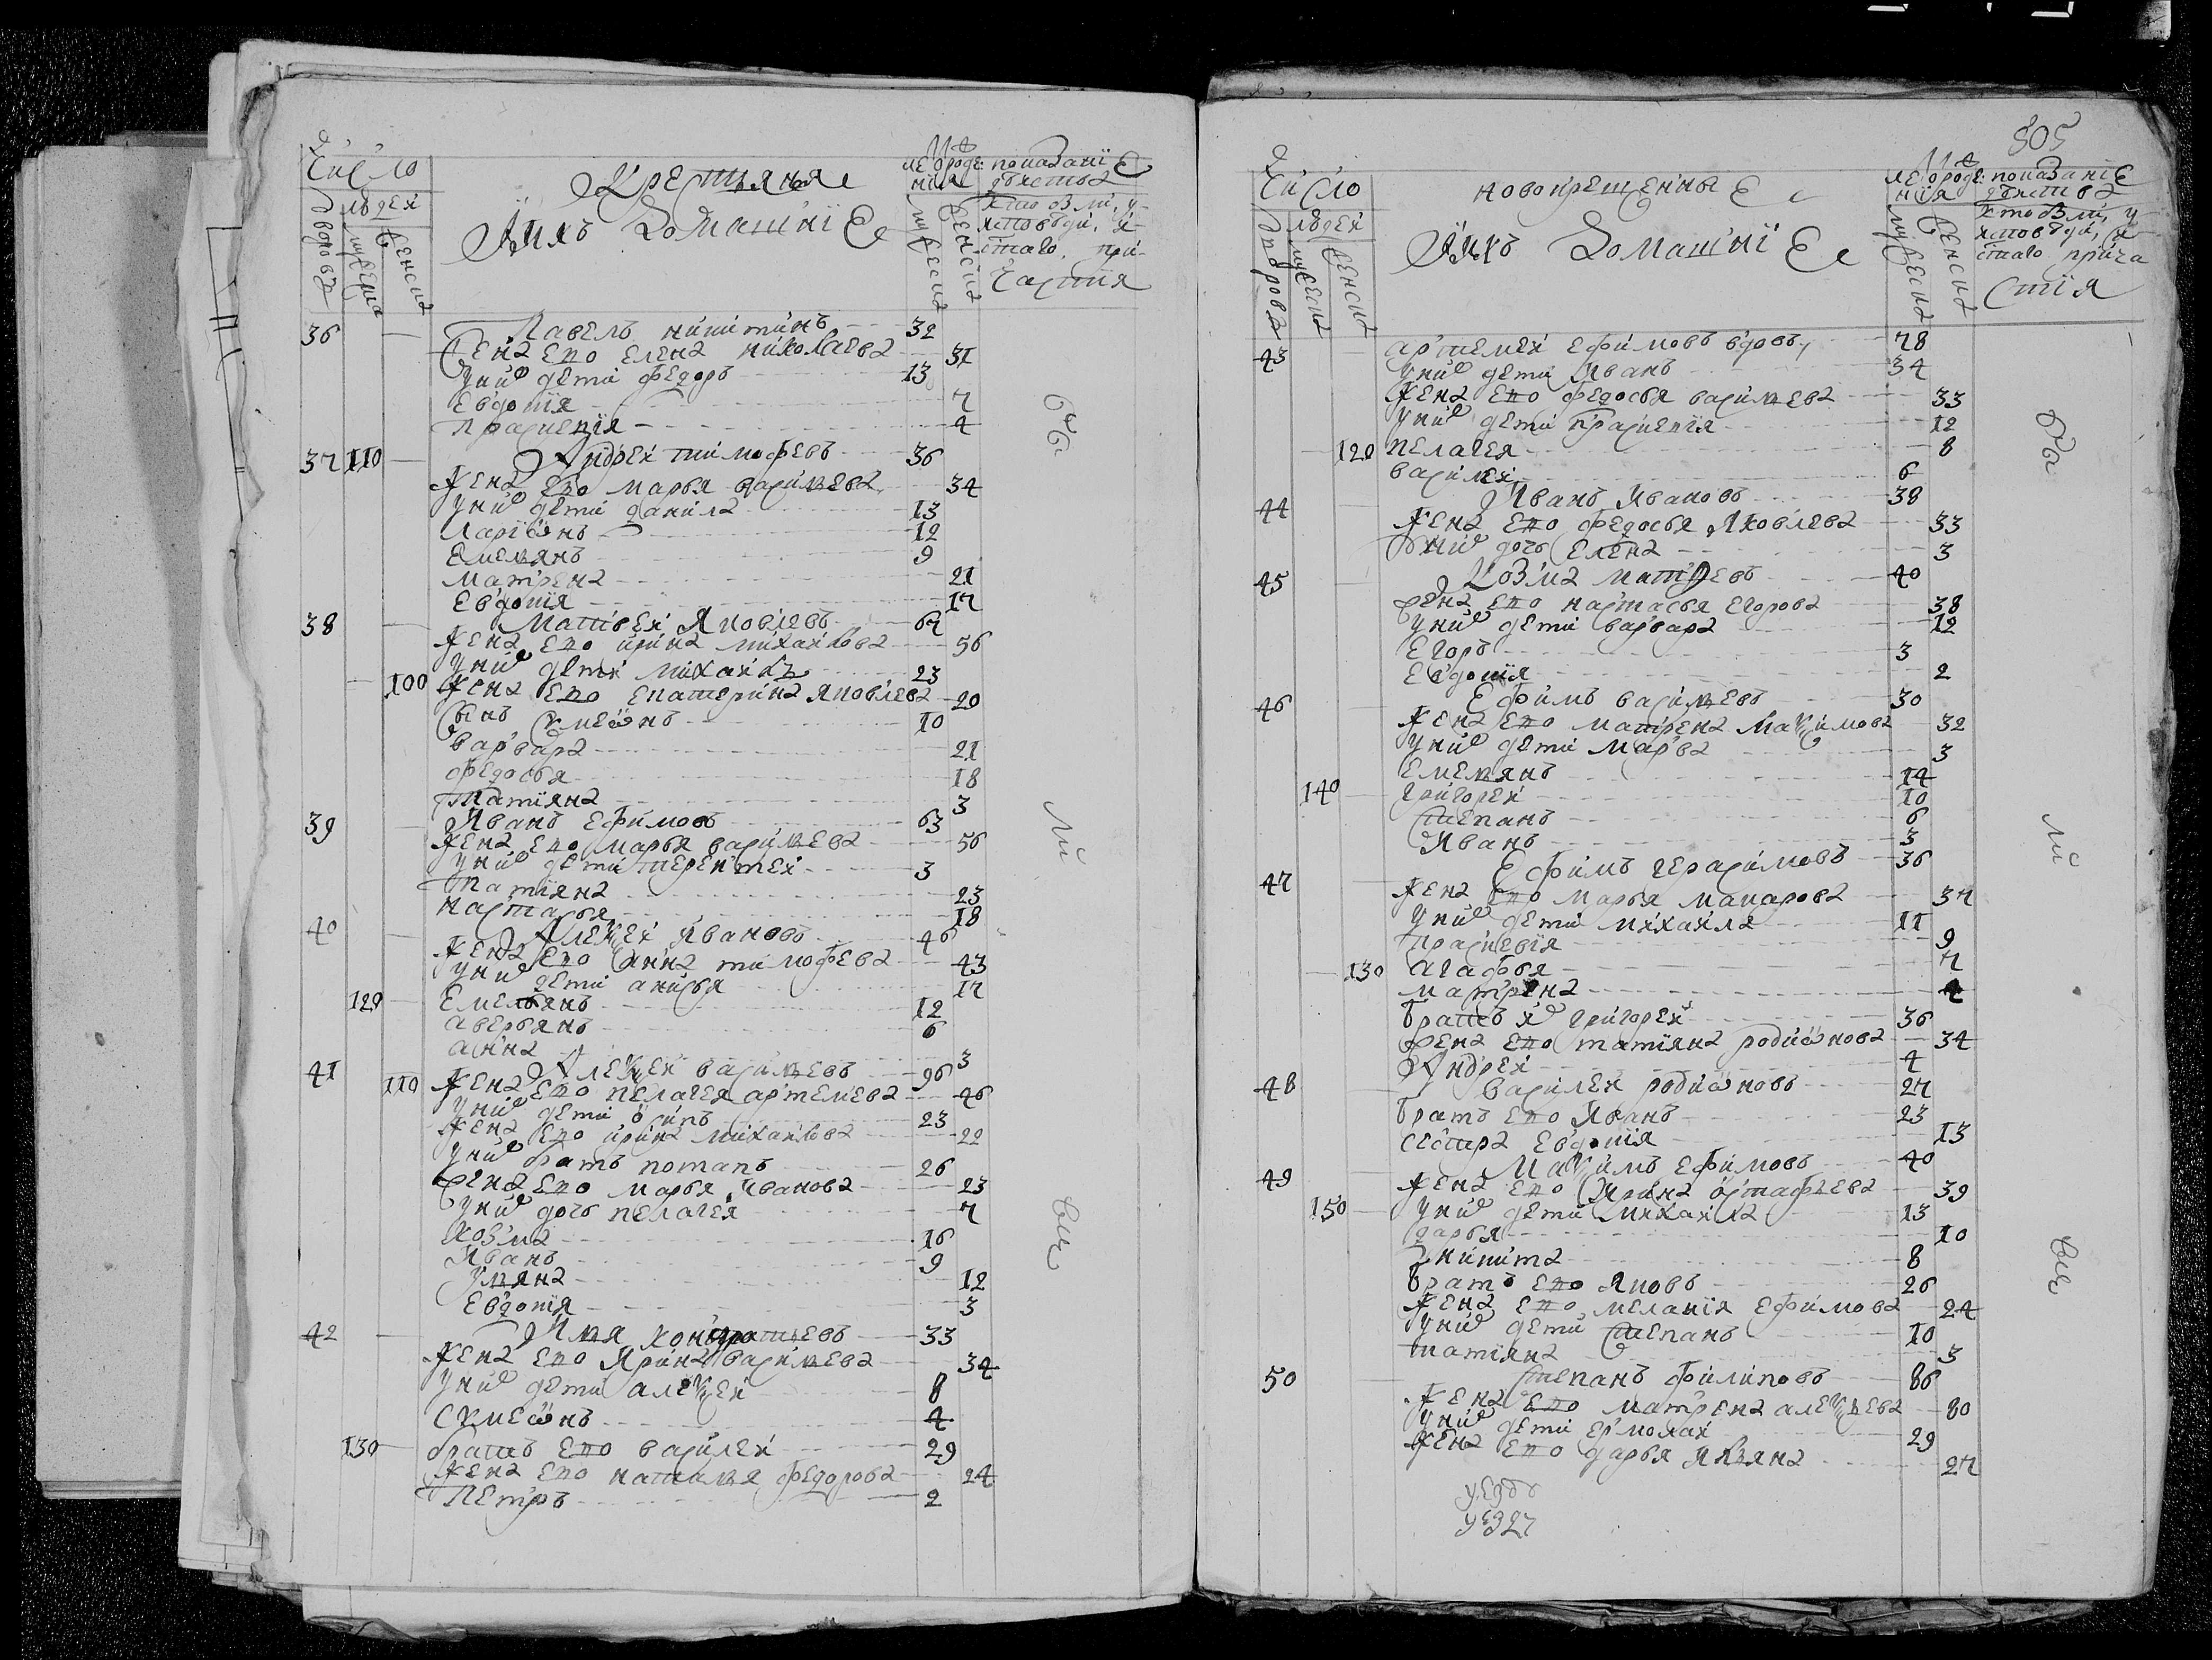 Число
людей
дворовъ
мужеска
женска
Крестьяня
и ихъ домашнїе
лѣ ѿ рождения
мужеска
женска
показанїе
действа
кто был у
исповеди, и
святаго при
частия
36 Павелъ никитинъ 32
жена его елена николаева 31
у них дети федоръ 13
Евдокїя 7
Праскевїя 4
37 110 Андреи тимофеевъ 36
жена его марья васильева 34
у них дети данила 13
Ларїонъ 12
Емельянъ 9
матрена 21
Евдокїя 17
38 Матвеи Яковлевъ 67
жена его ирина михаилова 56
у них дети михаилъ 23
100 жена его екатерина Яковлева 20
сынъ Сѵмеонъ 10
варвара 21
федосья 18
татїяна 3
39 Иванъ Ефимовъ 63
жена его марья васильева 56
у них дети терентеи 3
татїяна 23
настасья 18
40 Алеѯеи Ивановъ 46
жена его анна тимофеева 43
у них дети анисья 17
120 Емельянъ 12
аверьянъ 6
анна 3
41 Алеѯеи васильевъ 96
110 жена его пелагея артемева 46
у них дети ѡсипъ 23
жена его ирина михаилова 22
у них братъ потапъ 26
жена его марья Иванова 23
у них дочь пелагея 7
козма 16
Иванъ 9
Ульяна 12
Евдокїя 3
42 Илья кондратьевъ 33
жена его Ирина васильева 34
у них дети алеѯеи 8
Сѵмеонъ 4
130 братъ его василеи 29
жена его наталья федорова 24
Петръ 2
бы
ли
вси
505
Число
людей
дворовъ
мужеска
женска
новокрещенные
и ихъ домашнїе
лѣ ѿ рождения
мужеска
женска
показанїе
действа
кто был у
исповеди, и
святаго прича
стїя
43 артемеи ефимовъ вдовъ 78
у них дети Иванъ 34
жена его федосья васильева 33
у них дети Праскевїя 12
120 пелагея 8
василеи 6
44 Иванъ Ивановъ 38
жена его федосья Яковлева 33
у них дочь Елена 3
45 Козма матвеевъ 40
жена его настасья Егорова 38
у них дети варвара 12
Егоръ 3
Евдокїя 2
46 Ефимъ васильевъ 30
жена его матрена Маѯимова 32
у них дети марва 3
Емельянъ 14
140 григореи 10
степанъ 6
Иванъ 3
47 Ефимъ герасимовъ 36
жена его марья макарова 37
у них дети михаила 11
праскевїя 9
130 агафья 7
матрена 4
братъ их григореи 36
жена его татїяна родиѡнова 34
Андреи 4
48 василеи родиѡновъ 27
братъ его Иванъ 23
сестра Евдокїя 13
49 Маѯимъ Ефимовъ 40
жена его Ирина ѡстафьева 39
150 у них дети михаила 13
дарья 10
никита 8
братъ его Яковъ 26
жена его меланїя Ефимова 24
у них дети степанъ 10
татїяна 3
50 степанъ филиповъ 86
жена его матрена алеѯеева 80
у них дети ермолаи 29
жена его дарья 27
бы
ли
вси